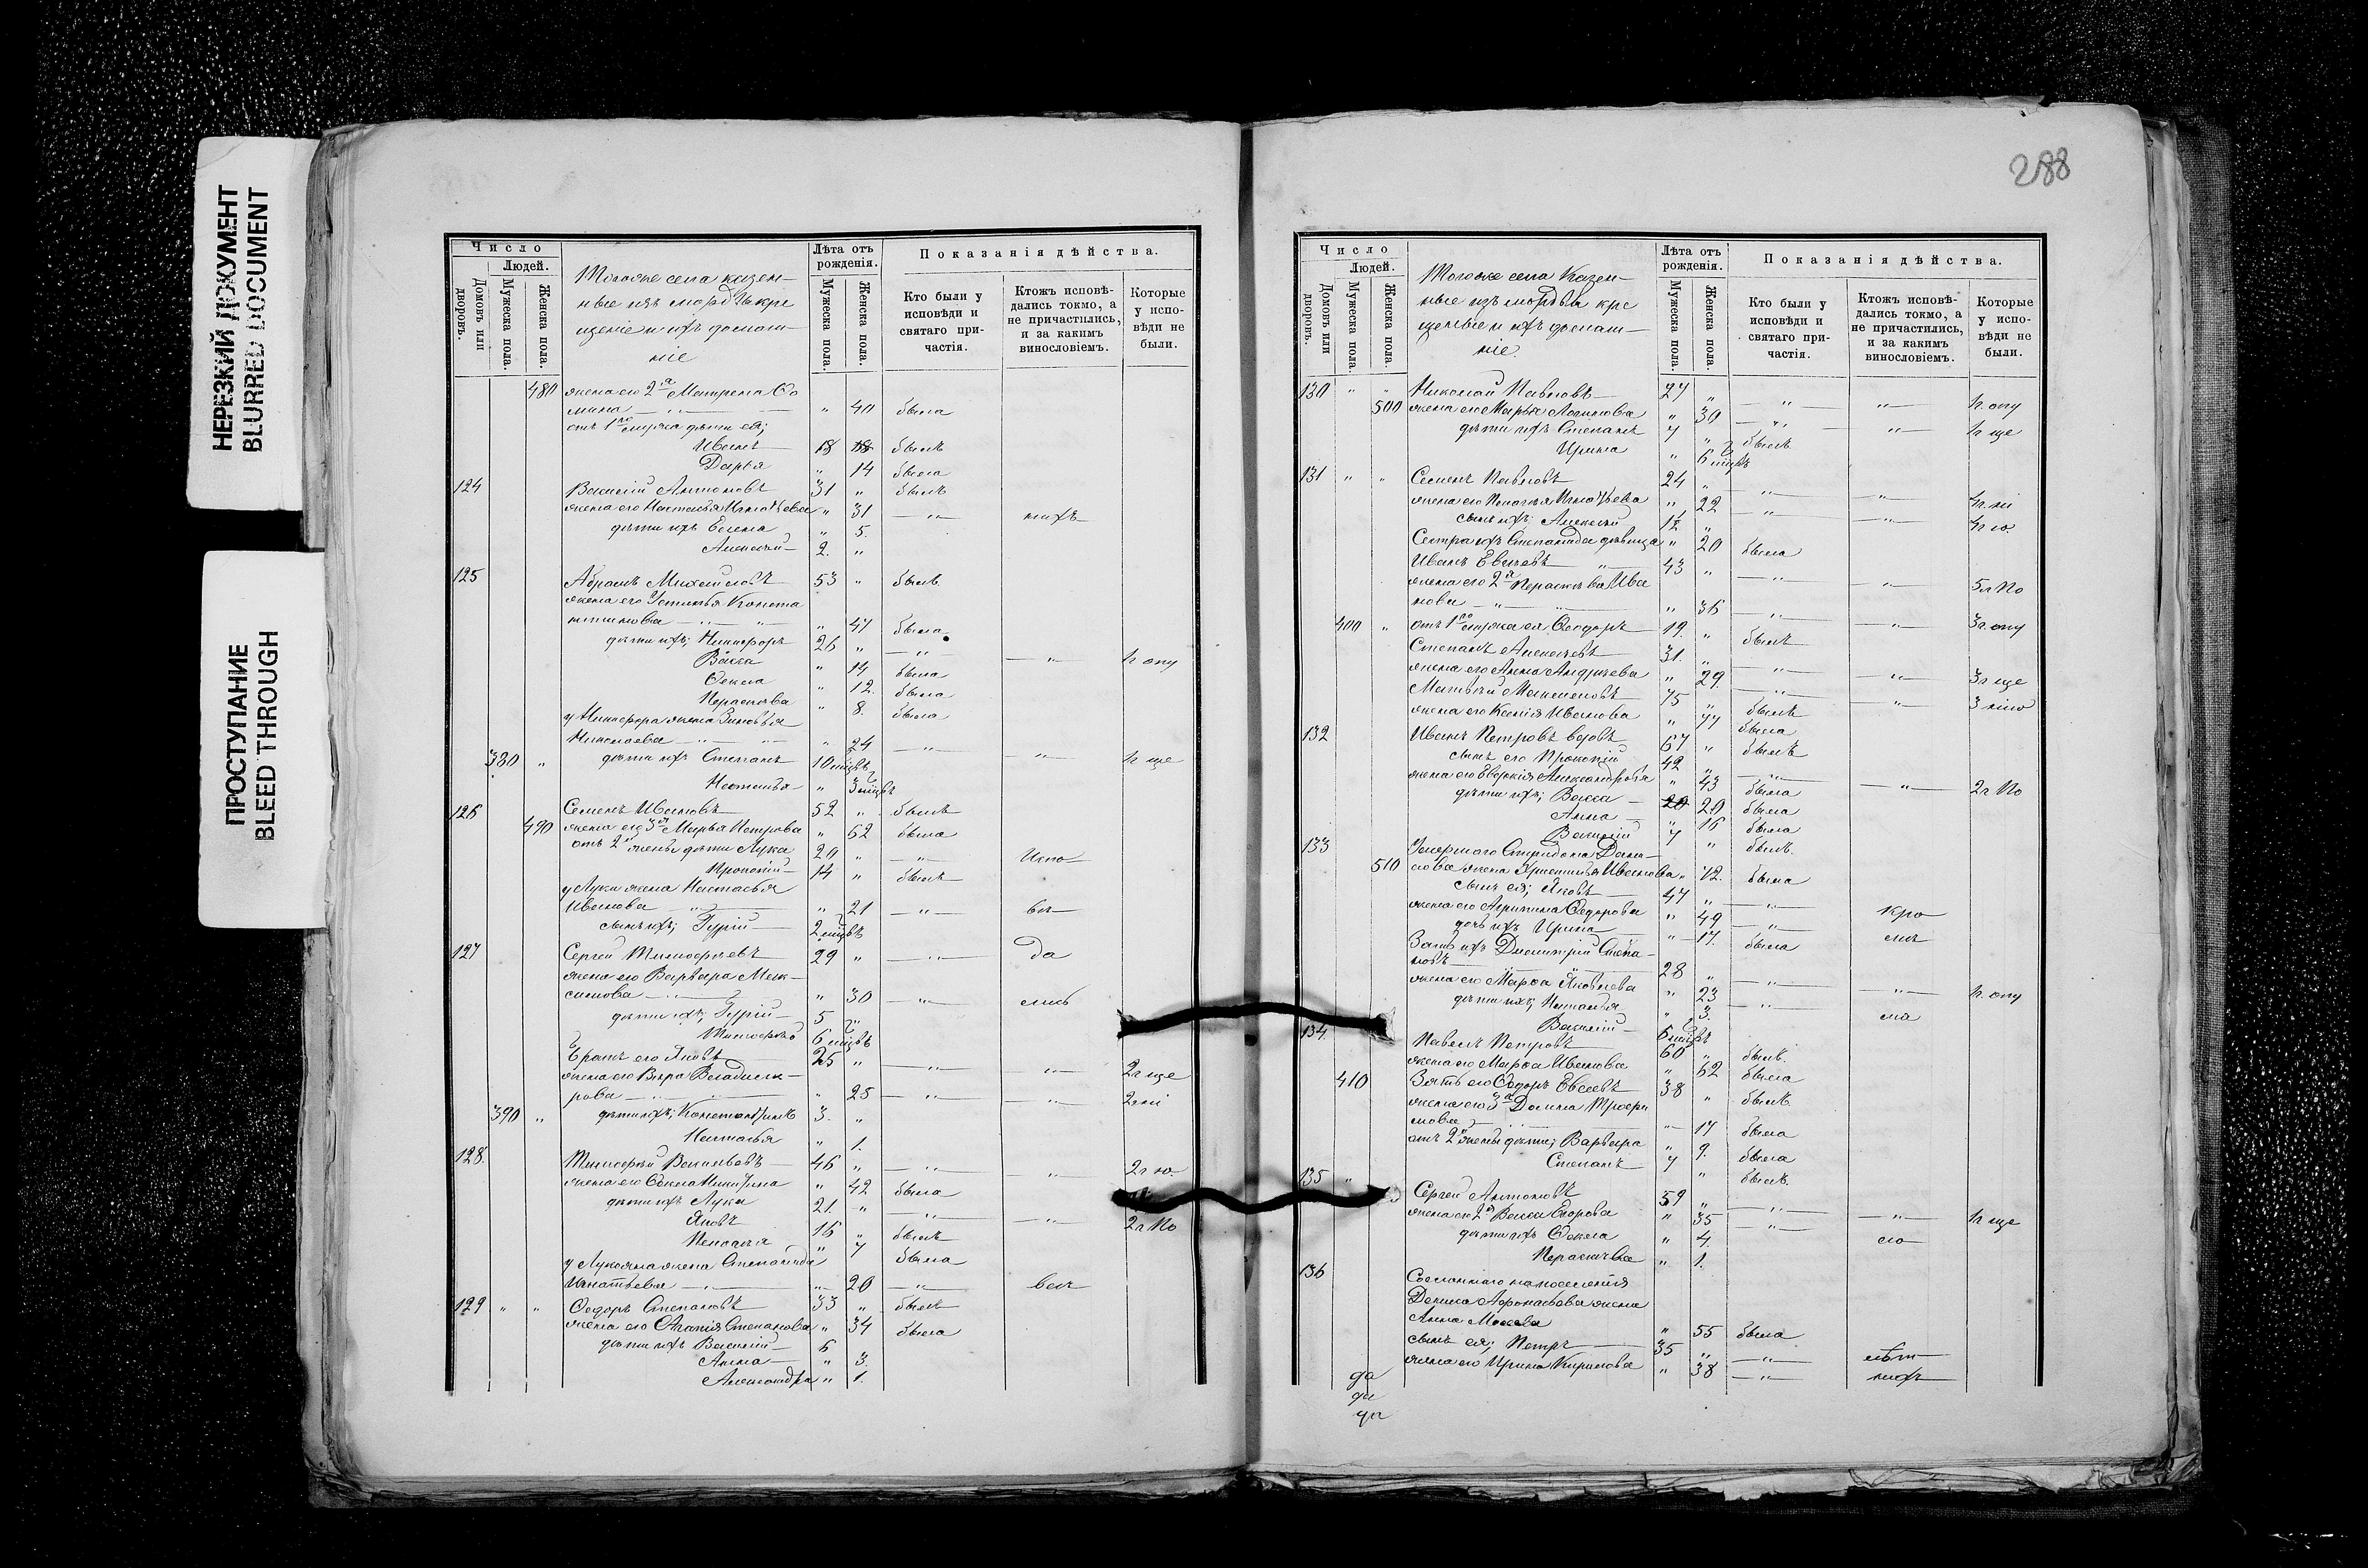 НЕРЕЗКИЙ ДОКУМЕНТ
BLURRED DOCUMENT
ПРОСТУПАНИЕ
BLEED THROUGH
Число
Людей.
Домовъ или дворовъ.
Мужеска пола.
Женска пола.
Тогоже села казен-
ные изъ морд
щеніе и ихъ домаш-
ніе
Лѣта отъ рожденія.
Мужеска пола.
Женска пола.
Показанія дѣйства.
Кто были у исповѣди и святаго причастія.
Ктожъ исповѣдались токмо, а не причастились, и за какимъ винословіемъ.
Которые у исповѣди не были.
480 жена его 2я Матрена Фо
мина " 40 была
отъ 1го мужа дѣти ея;
Иванъ 18 былъ
Дарья " 14 была
124 Василій Антоновъ 31 " былъ
жена его Настасья Игнатьева " 31 "
дѣти ихъ Елена " 5.
Алексѣй 2. "
125 Абрамъ Михайловъ 53 " былъ
жена его Устинья Конста
нтинова " 47 была
дѣти ихъ; Никифоръ 26 " " "
Васса " 14 была
Фекла " 12. была
Параскева " 8. была
у Никифора жена Зиновья
Николаева " 24 " "
380 " дѣти ихъ Степанъ 10 мцвъ
Настасья " 3 мцвъ
126 Семенъ Ивановъ 52 " былъ
490 жена его 3я Марья Петрова " 62 была
отъ 2й жены дѣти Лука 20 " " Испо
Прокопій 14 " былъ
у Луки жена Настасья
Иванова " 21 " вѣ
сынъ ихъ; Гурій 2 мцвъ
127 Сергей Тимофеевъ 29 " " да
жена его Варвара Мак-
симова " 30 " лись
дѣти ихъ; Гурій 5 "
Тимофей 6 мцвъ
Братъ его Яковъ 25 " " "
жена его Вѣра Владими-
рова " 25 " "
390 " дѣти ихъ; Константинъ 3. "
Настасья " 1.
128. Тимофей Васильевъ 46 " " "
жена его Фекла Никитина " 42 была
дѣти ихъ Лука 21. " " "
Яковъ 16 " былъ
Пелагея " 7 была
у Лукояна жена Степанида
Игнатьева " 20 "
129 " " Федоръ Степановъ 33 " былъ
жена его Агапія Степанова " 34 была
дѣти ихъ Василій 6
Анна " 3.
Александра " 1.
288
Число
Людей.
Домовъ или дворовъ.
Мужеска пола.
Женска пола.
Тогоже села Казен-
ные изъ мордвы кре
щеные и ихъ домаш-
ніе.
Лѣта отъ рожденія.
Мужеска пола.
Женска пола.
Показанія дѣйства.
Кто были у исповѣди и святаго причастія.
Ктожъ исповѣдались токмо, а не причастились, и за какимъ винословіемъ.
Которые у исповѣди не были.
130 " " Николай Павловъ 27 " " "
500 жена его Марья Логинова " 30 " "
дѣти ихъ Степанъ 7 " былъ
Ирина " 6 мцвъ
131 " " Семенъ Павловъ 24 " " "
жена его Пелагея Игнатьева " 22 " "
сынъ ихъ; Алексѣй "
Сестра ихъ Степанида дѣвица " 20 была
Иванъ Евсеевъ 43 " " "
жена его 2я Параскева Ива
нова " 36 " "
400 " отъ 1го мужа ея Феодоръ 19. " былъ
Степанъ Алексѣевъ 31. " " "
жена его Анна Андреева " 29. " "
Матвѣй Максимовъ 75 " былъ
жена его Ксенія Иванова " 77 была
132 Иванъ Петровъ вдовъ 67 " былъ
сынъ его Прокопій 42 " " "
жена его Евдокія Александрова " 43 была
дѣти ихъ; Васса " 20 была
Анна " 16 была
Василій 7 " былъ.
133 Умершаго Спиридона Дани-
510 лова жена Христинья Иванова " 72. была
сынъ ея; Яковъ 47 " "
жена его Агрипина Федорова " 49 "
дочь ихъ Ирина " 17. была
Зать ихъ Димитрій Степа-
новъ 28 " " "
жена его Марфа Яковлева " 23 "
дѣти ихъ; Наталья " 3.
Василій 6 мцвъ
134 Павелъ Петровъ 60 " былъ.
жена его Марфа Иванова " 62 была
410 Зать его Федоръ Евсеевъ 38 " былъ.
жена его 3я Домна Трофи
мова " 17 была
отъ 2й жены дѣти; Варвара " 9. была
Степанъ 7 " былъ.
135 " Сергей Антоновъ 59 " " "
жена его 2я Васса Егорова " 35 "
дѣти ихъ Фекла " 4.
Параскева " 1.
136 Сосланнаго на поселенія
Дениса Афонасьева жена
Анна " 55 была
сынъ ея; Петръ 35 " "
жена его Ирина Кирилова " 38 "